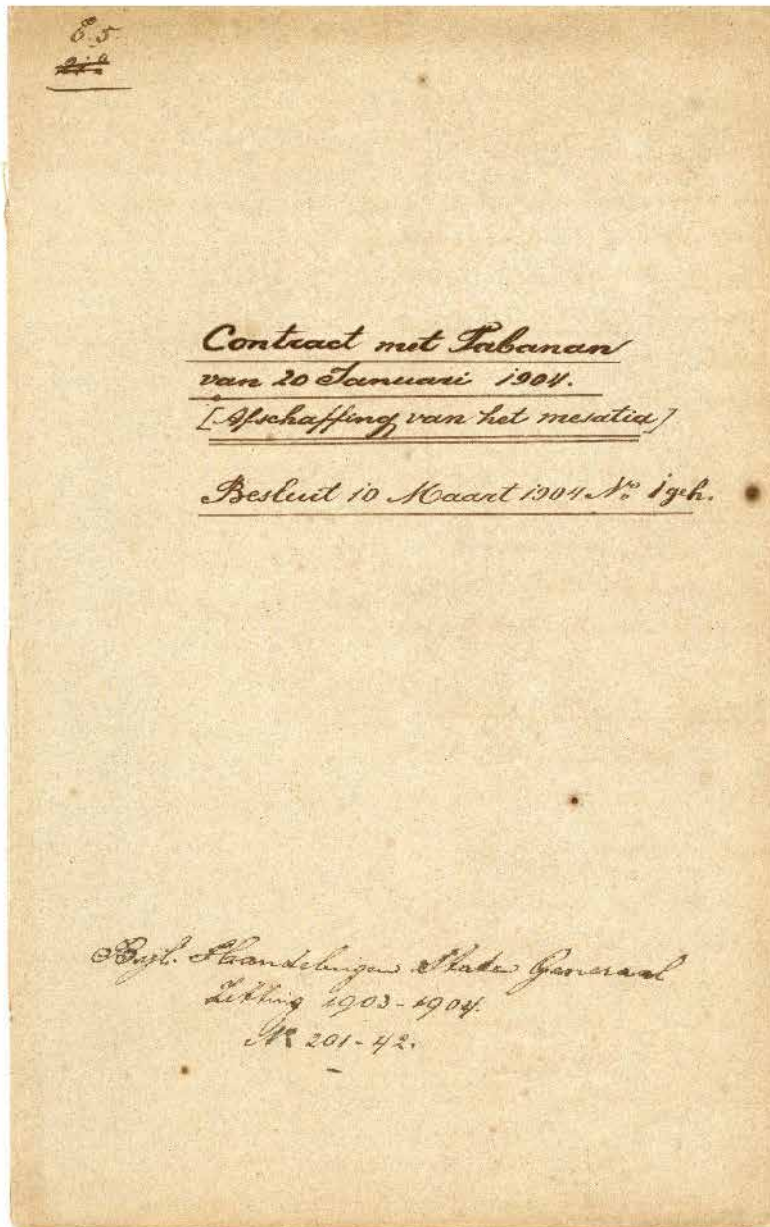 E. 5.
Contract met Tabanan
van 20 Januari 1904.
[Afschaffing van het mesatia]
Besluit 10 Maart 1904 No 1 geh.
Bijl. Handelingen Staten Generaal
Zitting 1903-1904.
No 201-42.